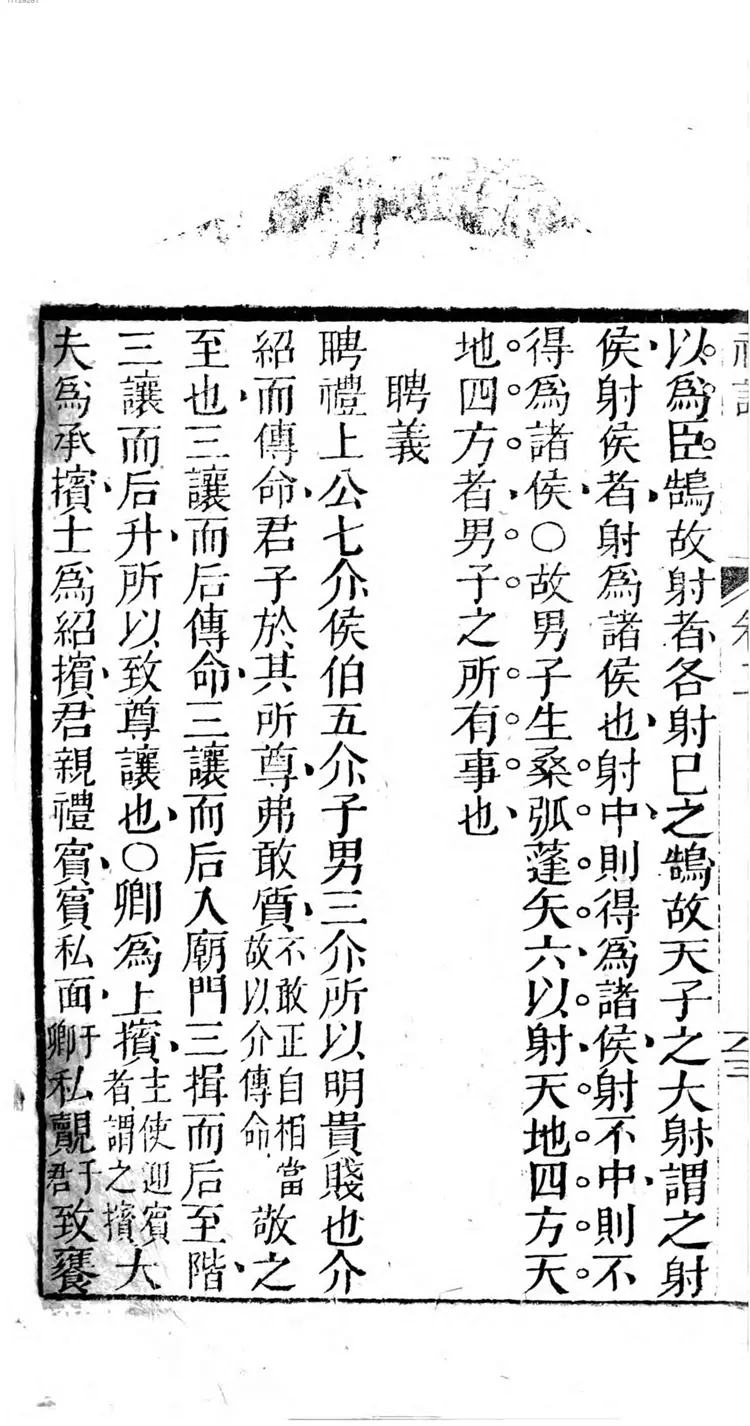 以爲臣鵠故射者各射巳之鵠故天子之大射謂之射
侯射侯者射爲諸侯也射中則得爲諸侯射不中則不
得爲諸侯○故男子生桑弧蓬矢六以射天地四方天
地四方者男子之所有事也
聘義
聘禮上公七介侯伯五介子男三介所以明貴賤也介
紹而傳命君子於其所尊弗敢質不敢正自相當故以介傳命敬之
至也三讓而后傳命三讓而后入廟門三揖而后至階
三讓而后升所以致尊讓也○卿爲上擯主使迎賓者謂之擯大
夫爲承擯士爲紹擯君親禮賓賓私面于卿私覿于君致饔